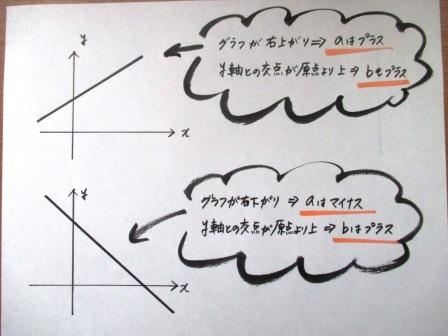 y
グラフが右上がり⇒aはプラス
y軸との交点が原点より上⇒bもプラス
x
y
グラフが右下がり⇒aはマイナス
y軸との交点が原点より上⇒bはプラス
x